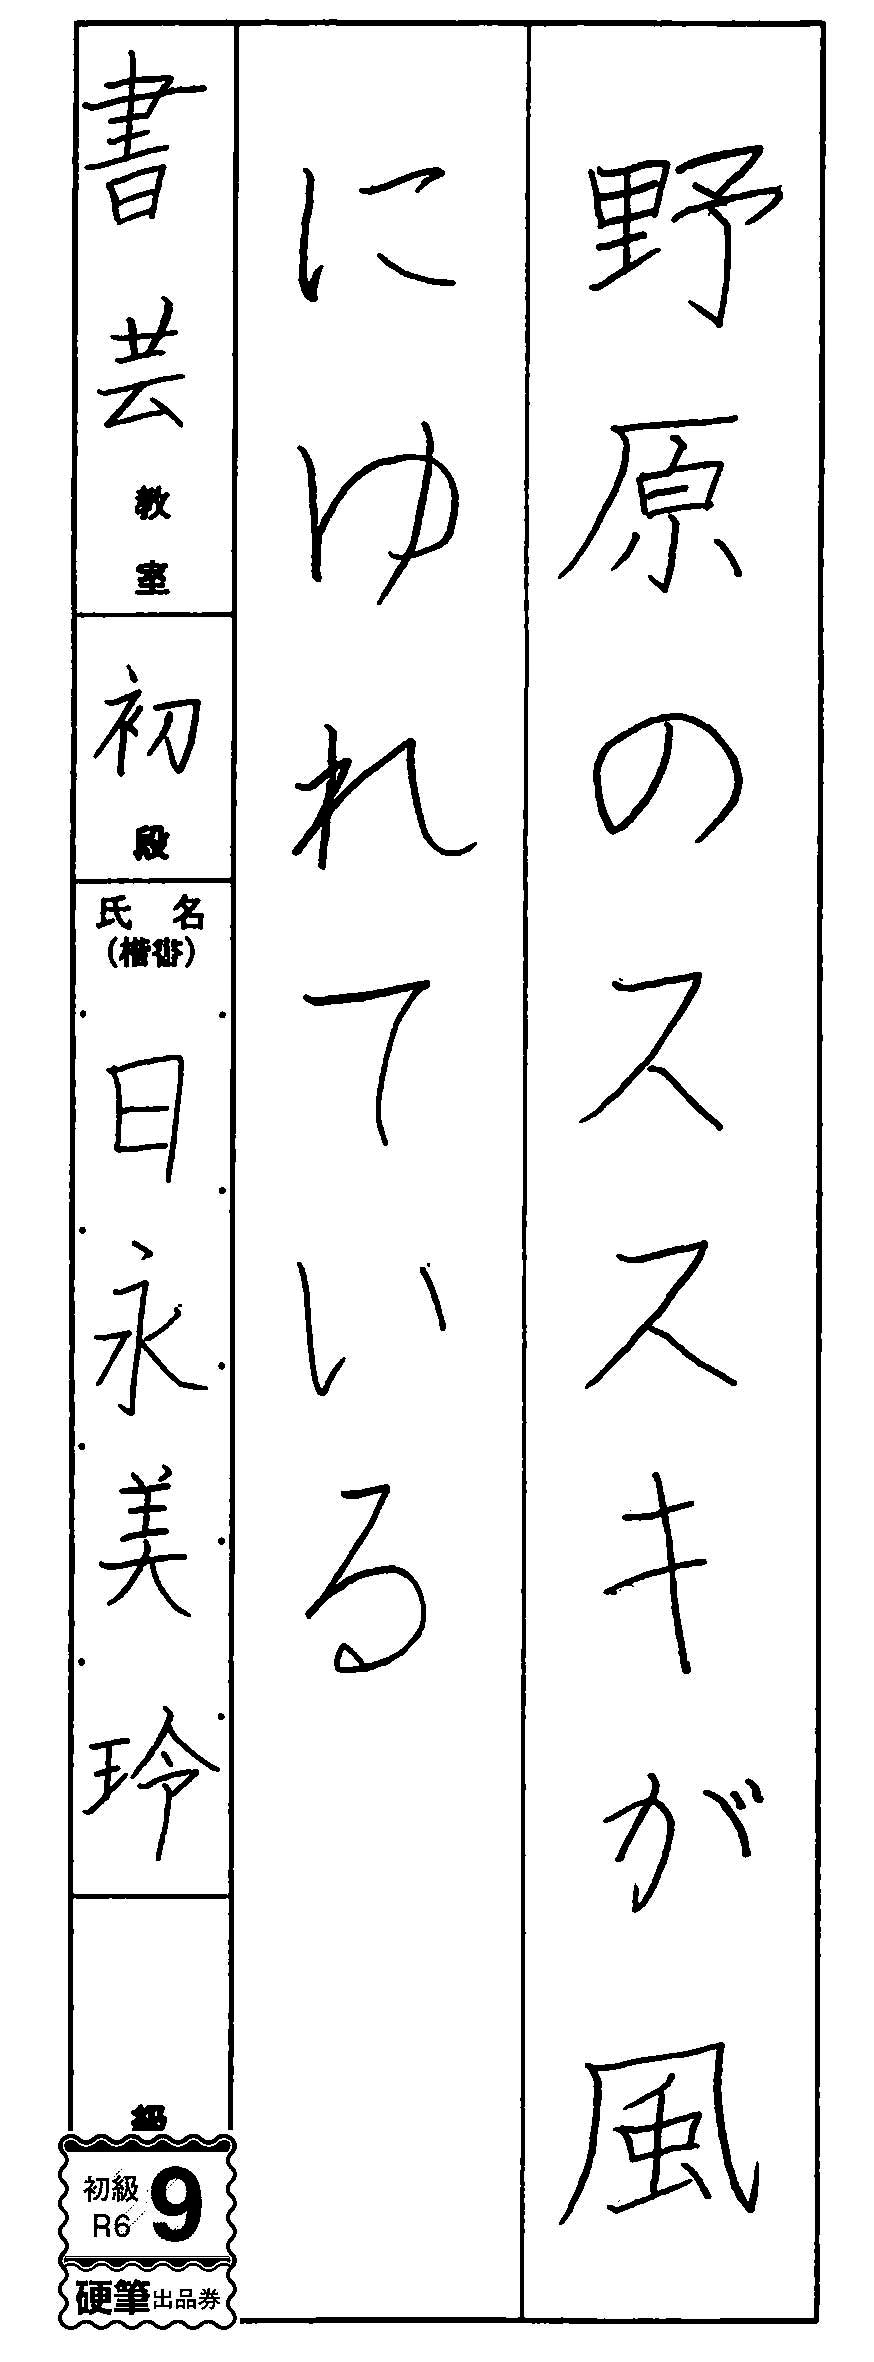 野原のススキが風
にゆれている
書芸教室
初段
氏名
(楷書)
日永美玲
級
初級
R6
9
硬筆出品券